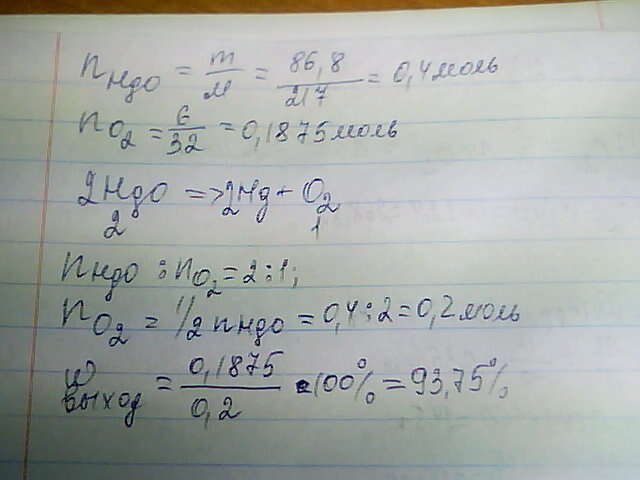 nHgO = m/M = 86,8/217 = 0,4 моль
nO2 = 6/32 = 0,1875 моль
2HgO => 2Hg + O2
2 1
nHgO : nO2 = 2:1;
nO2 = 1/2 nHgO = 0,4:2 = 0,2 моль
W выход = 0,1875/0,2 • 100% = 93,75%